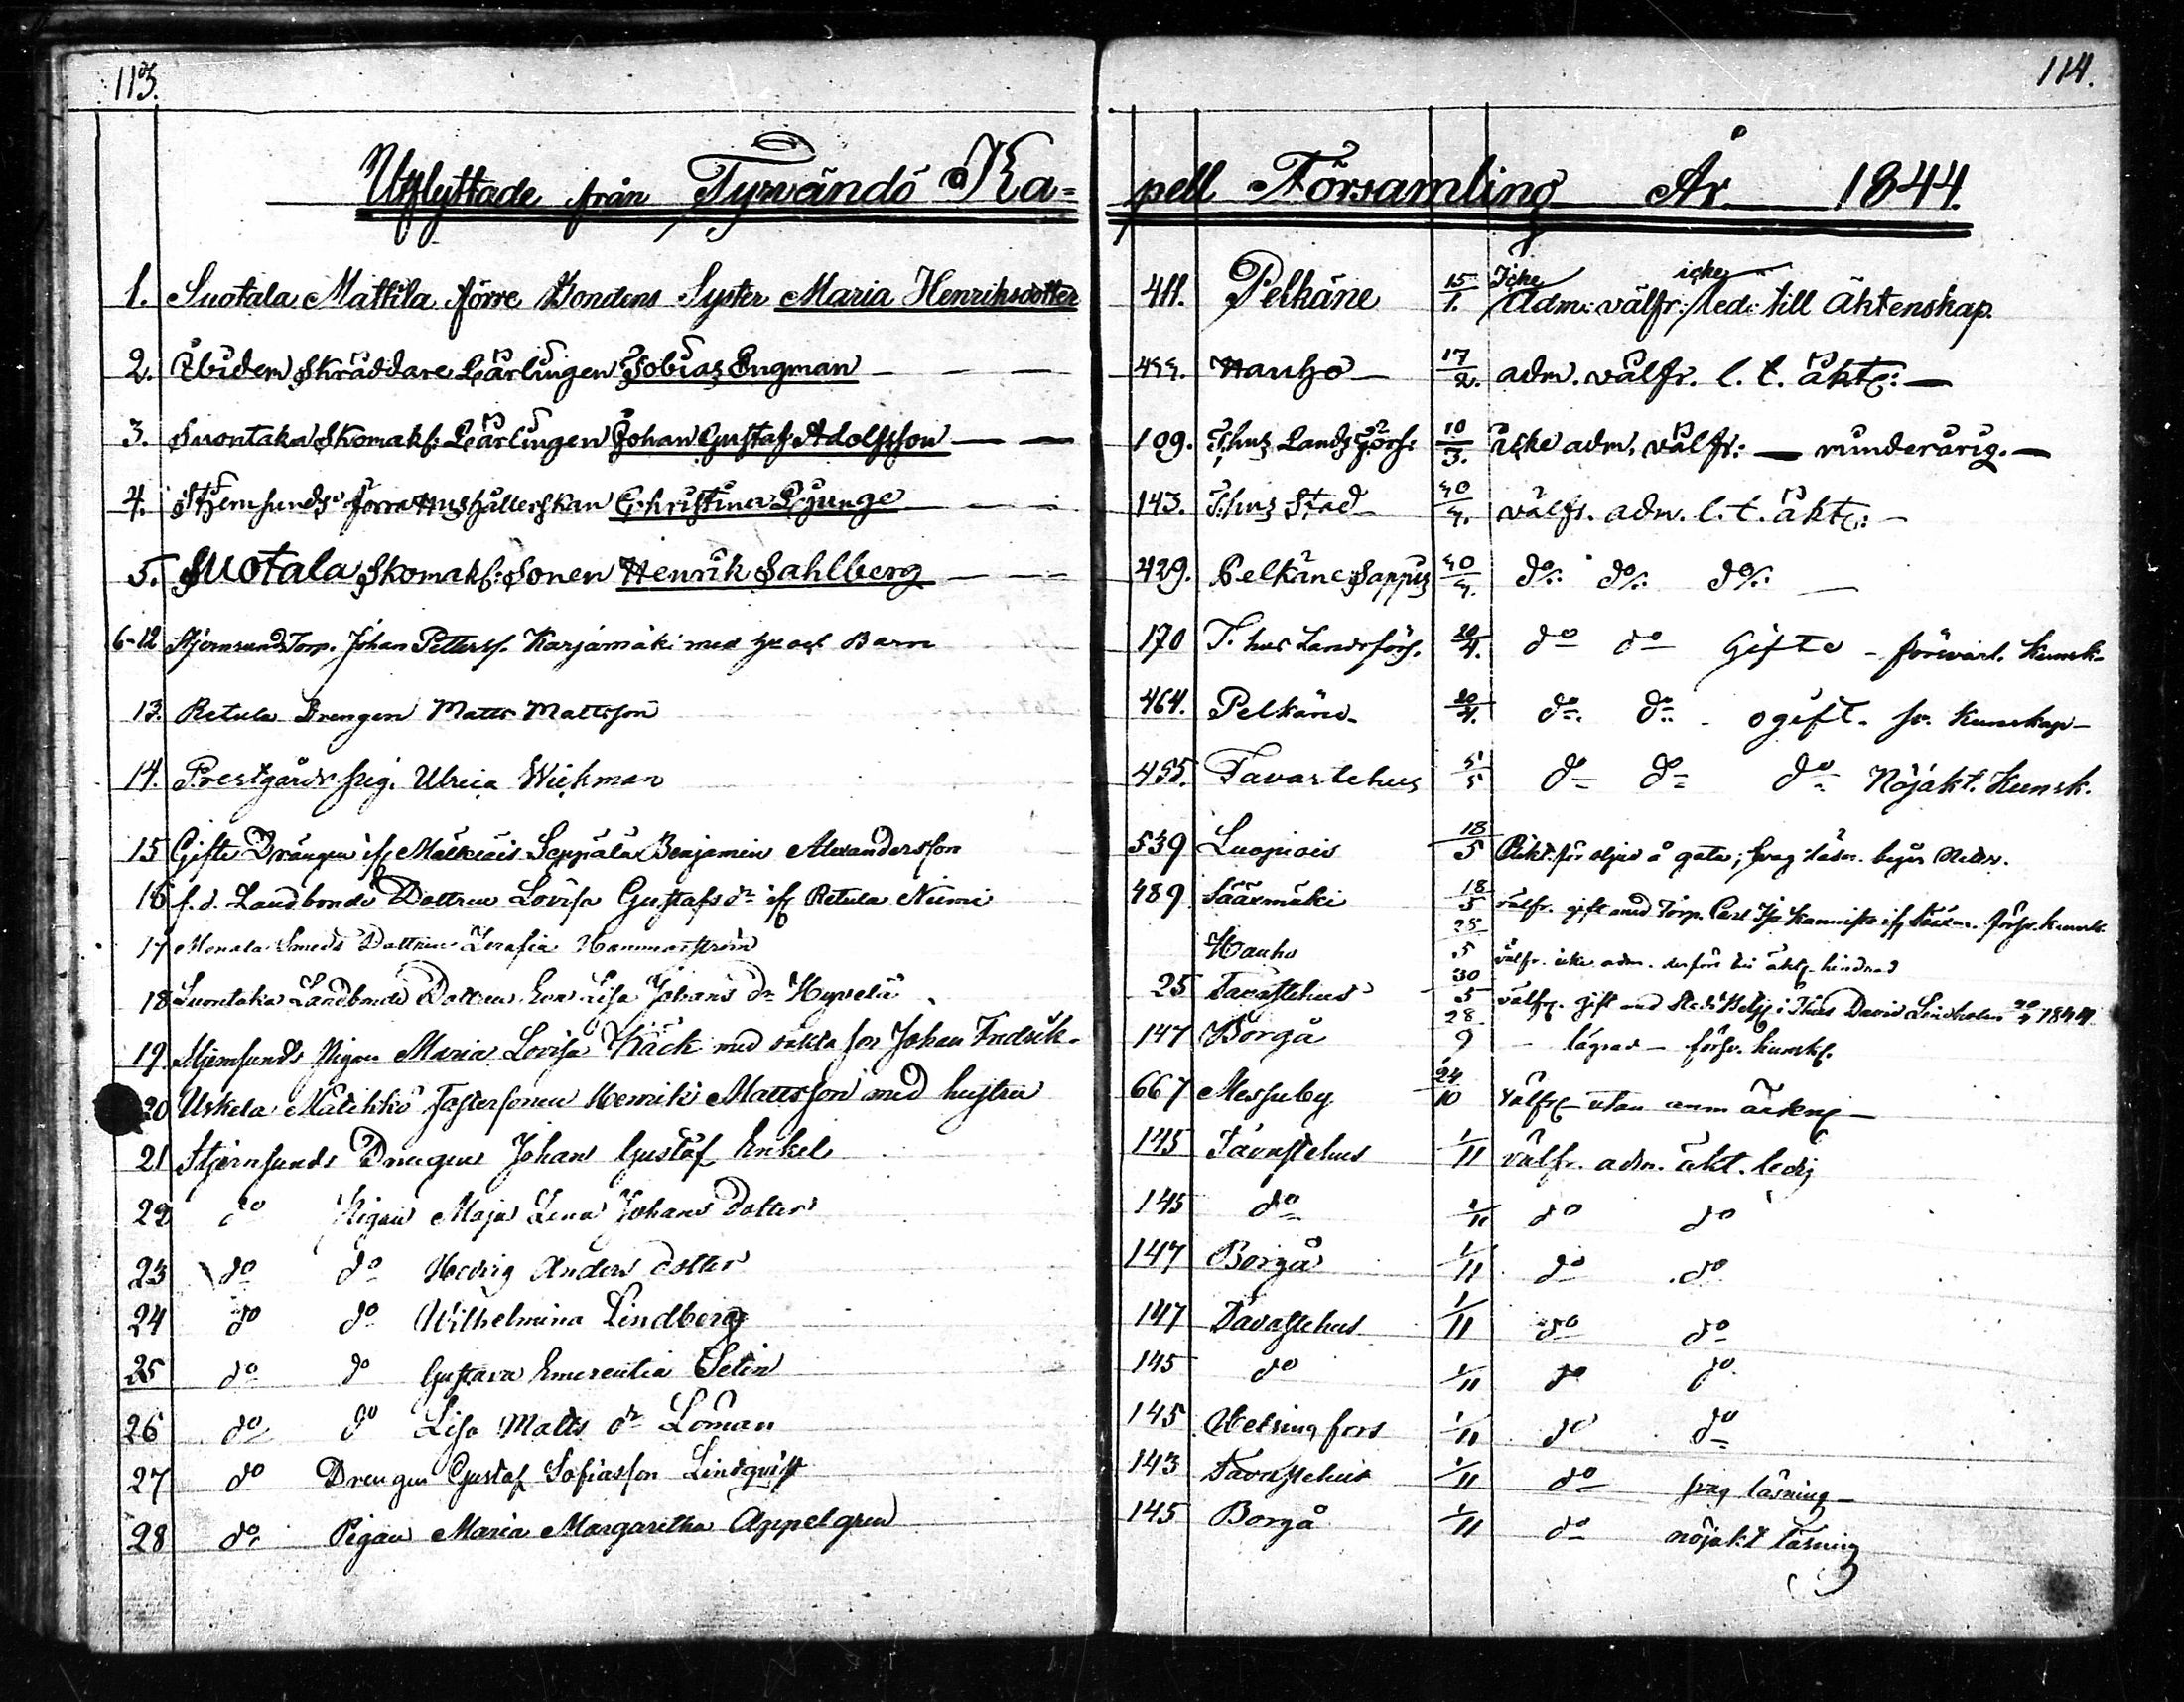 113. 114.
Utflyttade från Tyrvändö Ka= pell Församling År 1844.
1. Suotala Mattila förre Bondens Syster Maria Henriksdotter 411. Pelkäne 15/1. Icke adm: välfr: icke led: till äktenskap.
2. Ibidem Skräddare Lärlingen Tobias Engman — — — Hauho — 17/2. adm. välfr. l. t. äkt: —
3. Suontaka Skomak: Lärlingen Johan Gustaf Adolfsson — — 109. T:hus Lands Förs: 10/3. icke adm. välfr: — minderårig. —
4. Stjernsunds förra Hushållerskan Christina Ljunge — — 143. T:hus Stad välfr. adm. l. t. äkt: —
5. Suotala Skomak: Sonen Henrik Sahlberg — — 429. Pelkäne do do do —
6-12 Stjernsund Torp. Johan Petterss. Karjamäki med hu och Barn 170 T. hus Landsförs. 20/4. do do Gifte - försvarl. Kunsk-
13. Retula Drengen Matts Mattsson 464. Pelkäne 20/4. do do - ogift. sv. Kunskap-
14. Prestgårds pig. Ulrica Wickman 455. Tavastehus 5/5 do do do Nöjakt. Kunsk.
15 Gifte Drängen if Mälkiäis Seppälä Benjamin Alexandersson 539 Luopiois 18/5
16 f. d. Landbonde Dottren Lovisa Gustafs dr if Retula Niemi 489 Sääxmäki 18/5 välfr. gift med Torp. Carl
17 Monala Smeds Dottren Serafia Hammarström Hauho 25/5 välfr. icke adm. derföre till äkt. hindrad
18 Suontaka Landbonde Dottren Eva Lisa Johans dr Hypelä 25 Tavastehus 30/5 välfr. gift med David Lindholm 1844
19. Stjernsunds Pigan Maria Lovisa Käck med oäkta son Johan Fredrik- 147 Borgå 28/9 - lägrad - försv. kunsk.
20 Uskela Matikko Fastersonen Henrik Mattsson med hustru 667 Messuby 24/10 välfr. utan anm
21 Stjernsunds Drengen Johan Gustaf Enkel 145 Tavastehus 1/11 välfr. adm. äkt. ledig
22 do Pigan Maja Lena Johans dotter 145 do 1/11 do do
23 do do Hedvig Anders dotter 147 Borgå 1/11 do do
24 do do Wilhelmina Lindberg 147 Tavastehus 1/11 do do
25 do do Gustava Emerentia Selin 145 do 1/11 do do
26 do do Lisa Matts dr Loman 145 Helsingfors 1/11 do do
27 do Drengen Gustaf Sofiasson Lindqvist 143 Tavastehus 1/11 do svag läsning —
28 do Pigan Maria Margaretha Appelgren 145 Borgå 1/11 do nöjakt läsning